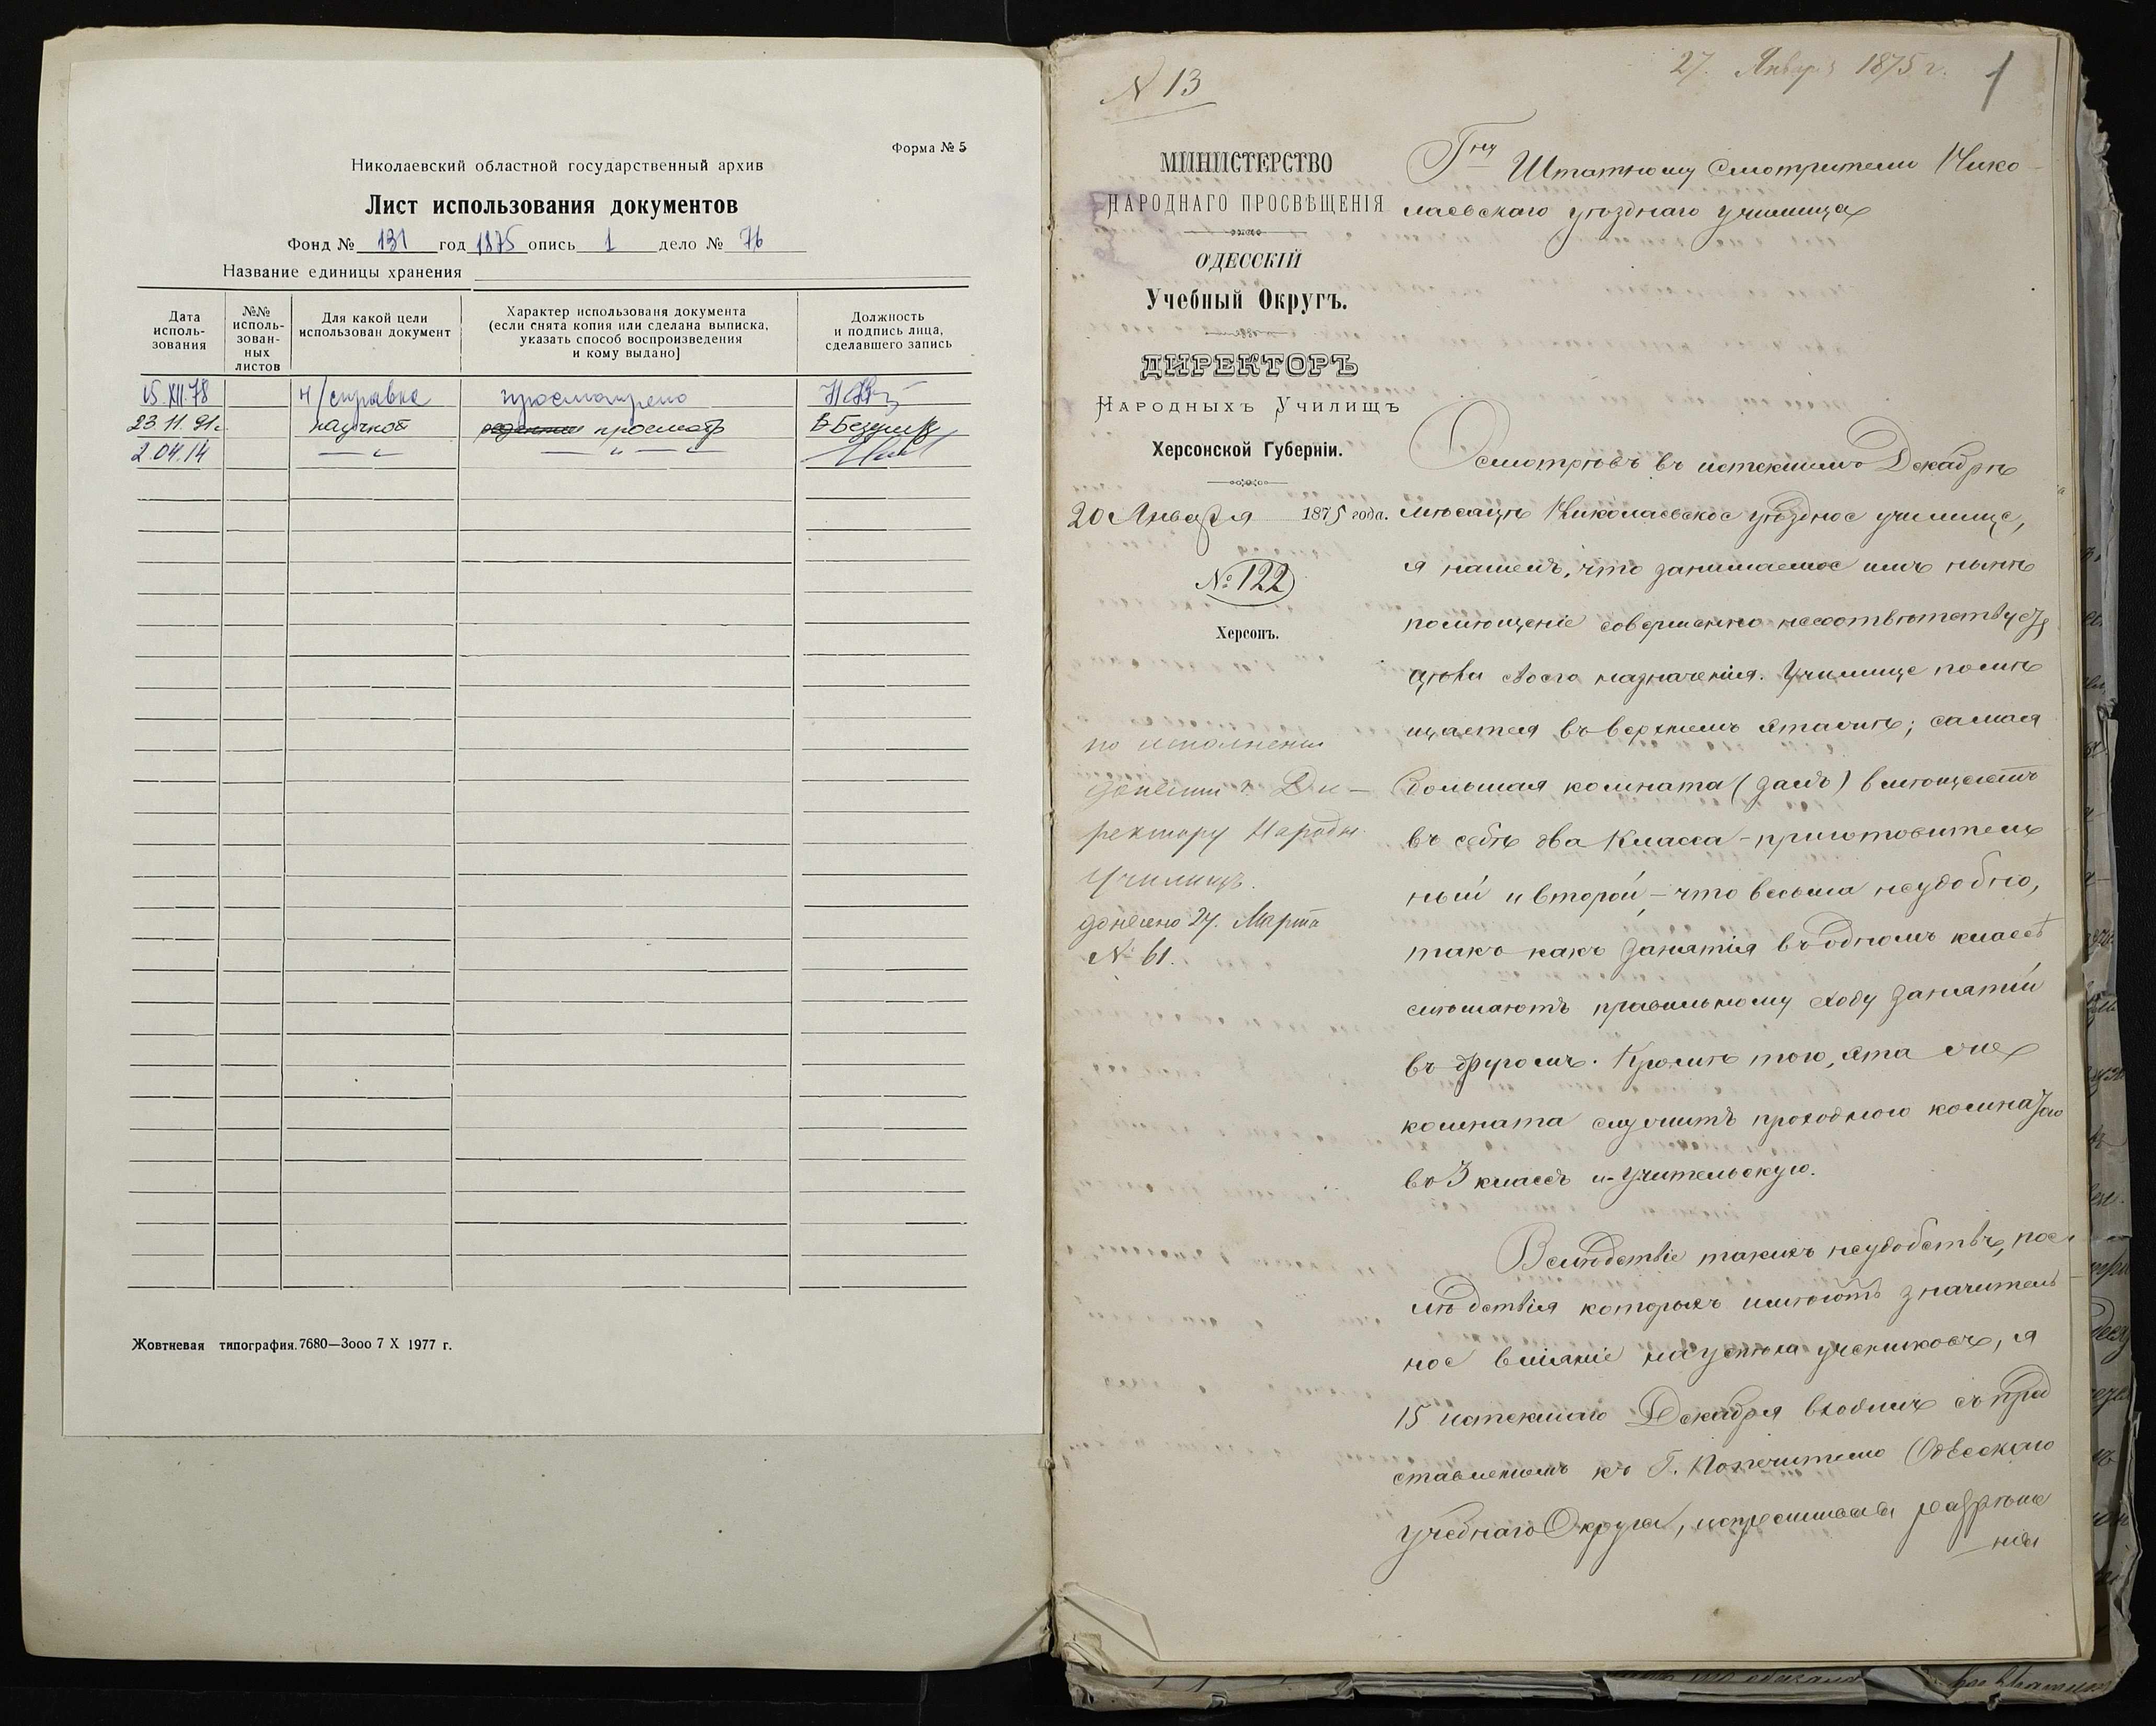 Форма № 5
Николаевский областной государственный архив
Лист использования документов
Фонд № 131 год 1875 опись 1 дело № 76
Название единицы хранения
Дата исполь-зования
№№ исполь-зован-ных листов
Для какой цели использован документ
Характер использованя документа (если снята копия или сделана выписка, указать способ воспроизведения и кому выдано]
Должность и подпись лица, сделавшего запись
15.XII.78 н/справка просмотрено
23.11.91г. научной просмотр
2.04.14 — " — — " —
Жовтневая типография. 7680—3ооо 7 X 1977 г.
27. Января 1875 г. 1
N 13
МИНИСТЕРСТВО
НАРОДНАГО ПРОСВѢЩЕНІЯ
ОДЕССКІЙ
Учебный Округъ.
ДИРЕКТОРЪ
Народныхъ Училищъ
Херсонской Губерніи.
20 Января 1875 года.
№ 122
Херсонъ.
по исполнении
донести г. Ди-
ректору Народн.
Училищъ.
донесено 27. Марта
№ 61.
Гну Штатному Смотрителю Нико
лаевскаго уѣзднаго училища
Осмотрѣвъ въ истекшемъ Декабрѣ
мѣсяцѣ Николаевское уѣздное училище,
я нашелъ, что занимаемое имъ нынѣ
помѣщеніе совершенно несоотвѣтствуетъ
цѣли своего назначенія. Училище помѣ
щается въ верхнемъ этажѣ; самая
большая комната (залъ) вмѣщаетъ
въ себѣ два класса - приготовитель
ный и второй, - что весьма неудобно,
такъ какъ занятія въ одномъ классѣ
мѣшаютъ правильному ходу занятій
въ другомъ. Кромѣ того, эта же
комната служитъ проходною комнатою
въ 3 классъ и учительскую.
Вслѣдствіе такихъ неудобствъ, пос
лѣдствія которыхъ имѣютъ значитель
ное вліяніе на успѣхи учениковъ, я
15 истекшаго Декабря входилъ съ пред
ставленіемъ къ Г. Попечителю Одесскаго
учебнаго Округа, испрашивая разрѣше
нія